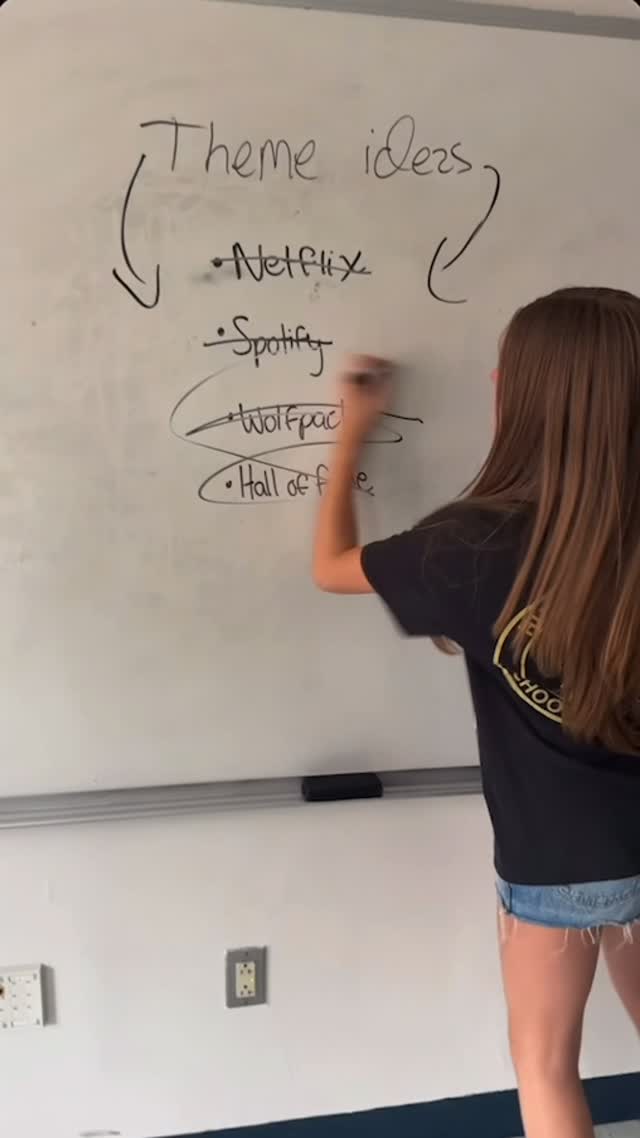 Theme ideas
• Netflix
• Spotify
• Wolfpac
• Hall of fame